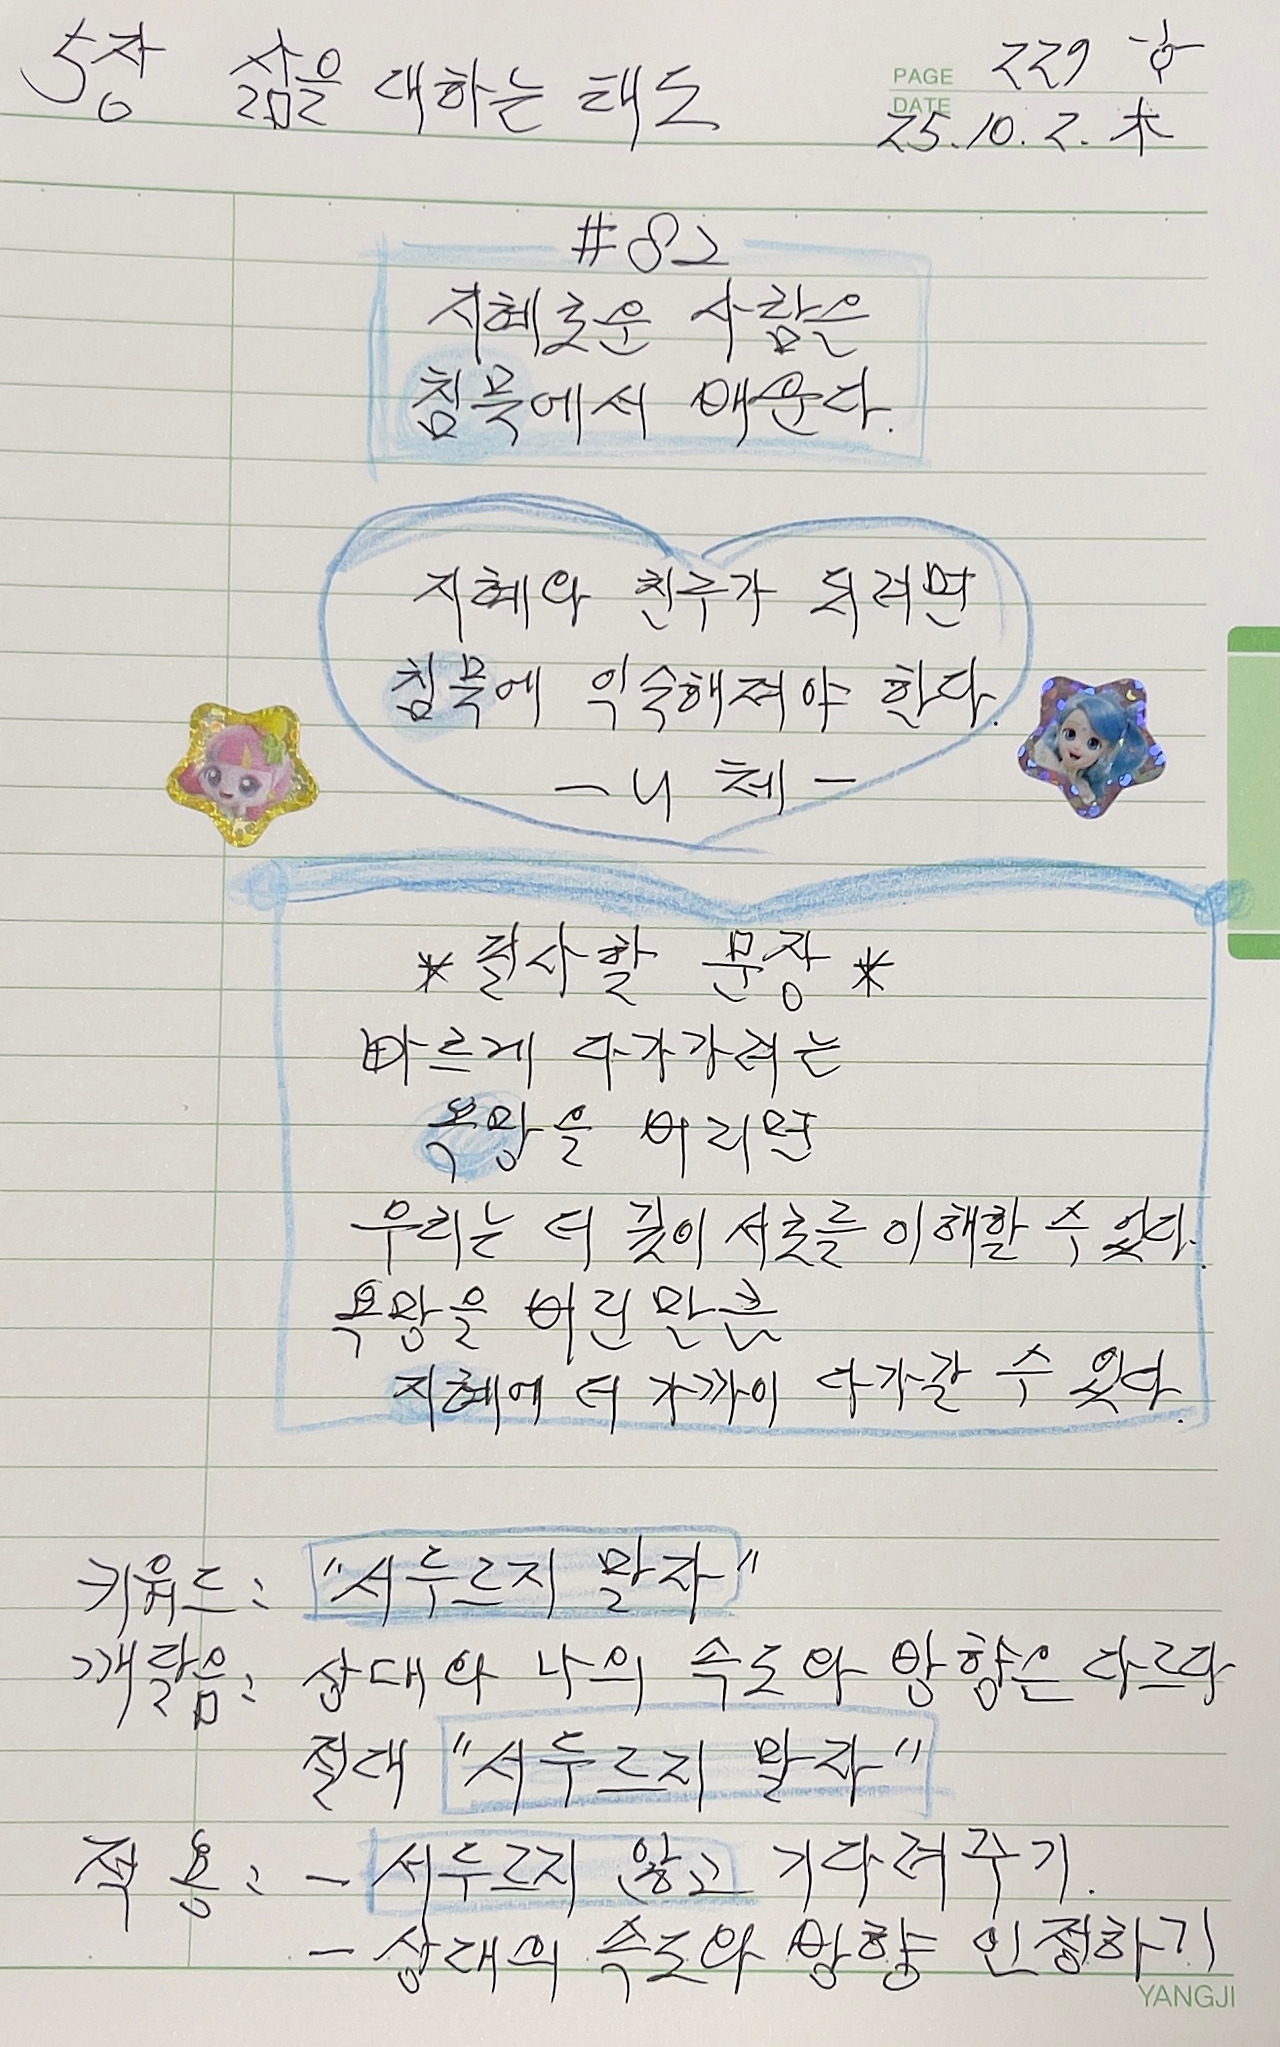 5장 삶을 대하는 태도
PAGE 229 日
DATE 25.10.2. 木
#82
지혜로운 사람은
침묵에서 배운다.
지혜와 친구가 되려면
침묵에 익숙해져야 한다.
- 니체 -
* 필사할 문장 *
빠르게 다가가려는
욕망을 버리면
우리는 더 깊이 서로를 이해할 수 있다.
욕망을 버린 만큼
지혜에 더 가까이 다가갈 수 있다.
키워드: "서두르지 말자"
깨달음: 상대와 나의 속도와 방향은 다르다
절대 "서두르지 말자"
적용: - 서두르지 않고 기다려주기.
- 상대의 속도와 방향 인정하기
YANGJI